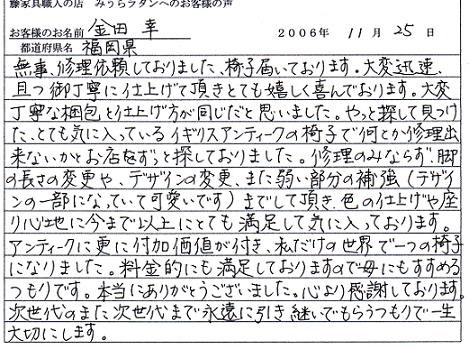 籐家具職人の店　みうらラタンへのお客様の声
お客様のお名前　金田　幸　2006年　11月　25日
都道府県名　福岡県
無事、修理依頼しておりました、椅子届いております。大変迅速、
且つ御丁寧に仕上げて頂きとても嬉しく喜んでおります。大変
丁寧な梱包と仕上げ方が同じだと思いました。やっと探して見つけ
た、とても気に入っているイギリスアンティークの椅子で何とか修理出
来ないかとお店をずっと探しておりました。修理のみならず、脚
の長さの変更や、デザインの変更、また弱い部分の補強（デザイ
ンの一部になっていて可愛いです）までして頂き、色の仕上げや座
り心地に今まで以上にとても満足して気に入っております。
アンティークに更に付加価値が付き、私だけの世界で一つの椅子
になりました。料金的にも満足しておりますので母にもすすめる
つもりです。本当にありがとうございました。心より感謝しております。
次世代のまた次世代まで永遠に引き継いでもらうつもりで一生
大切にします。